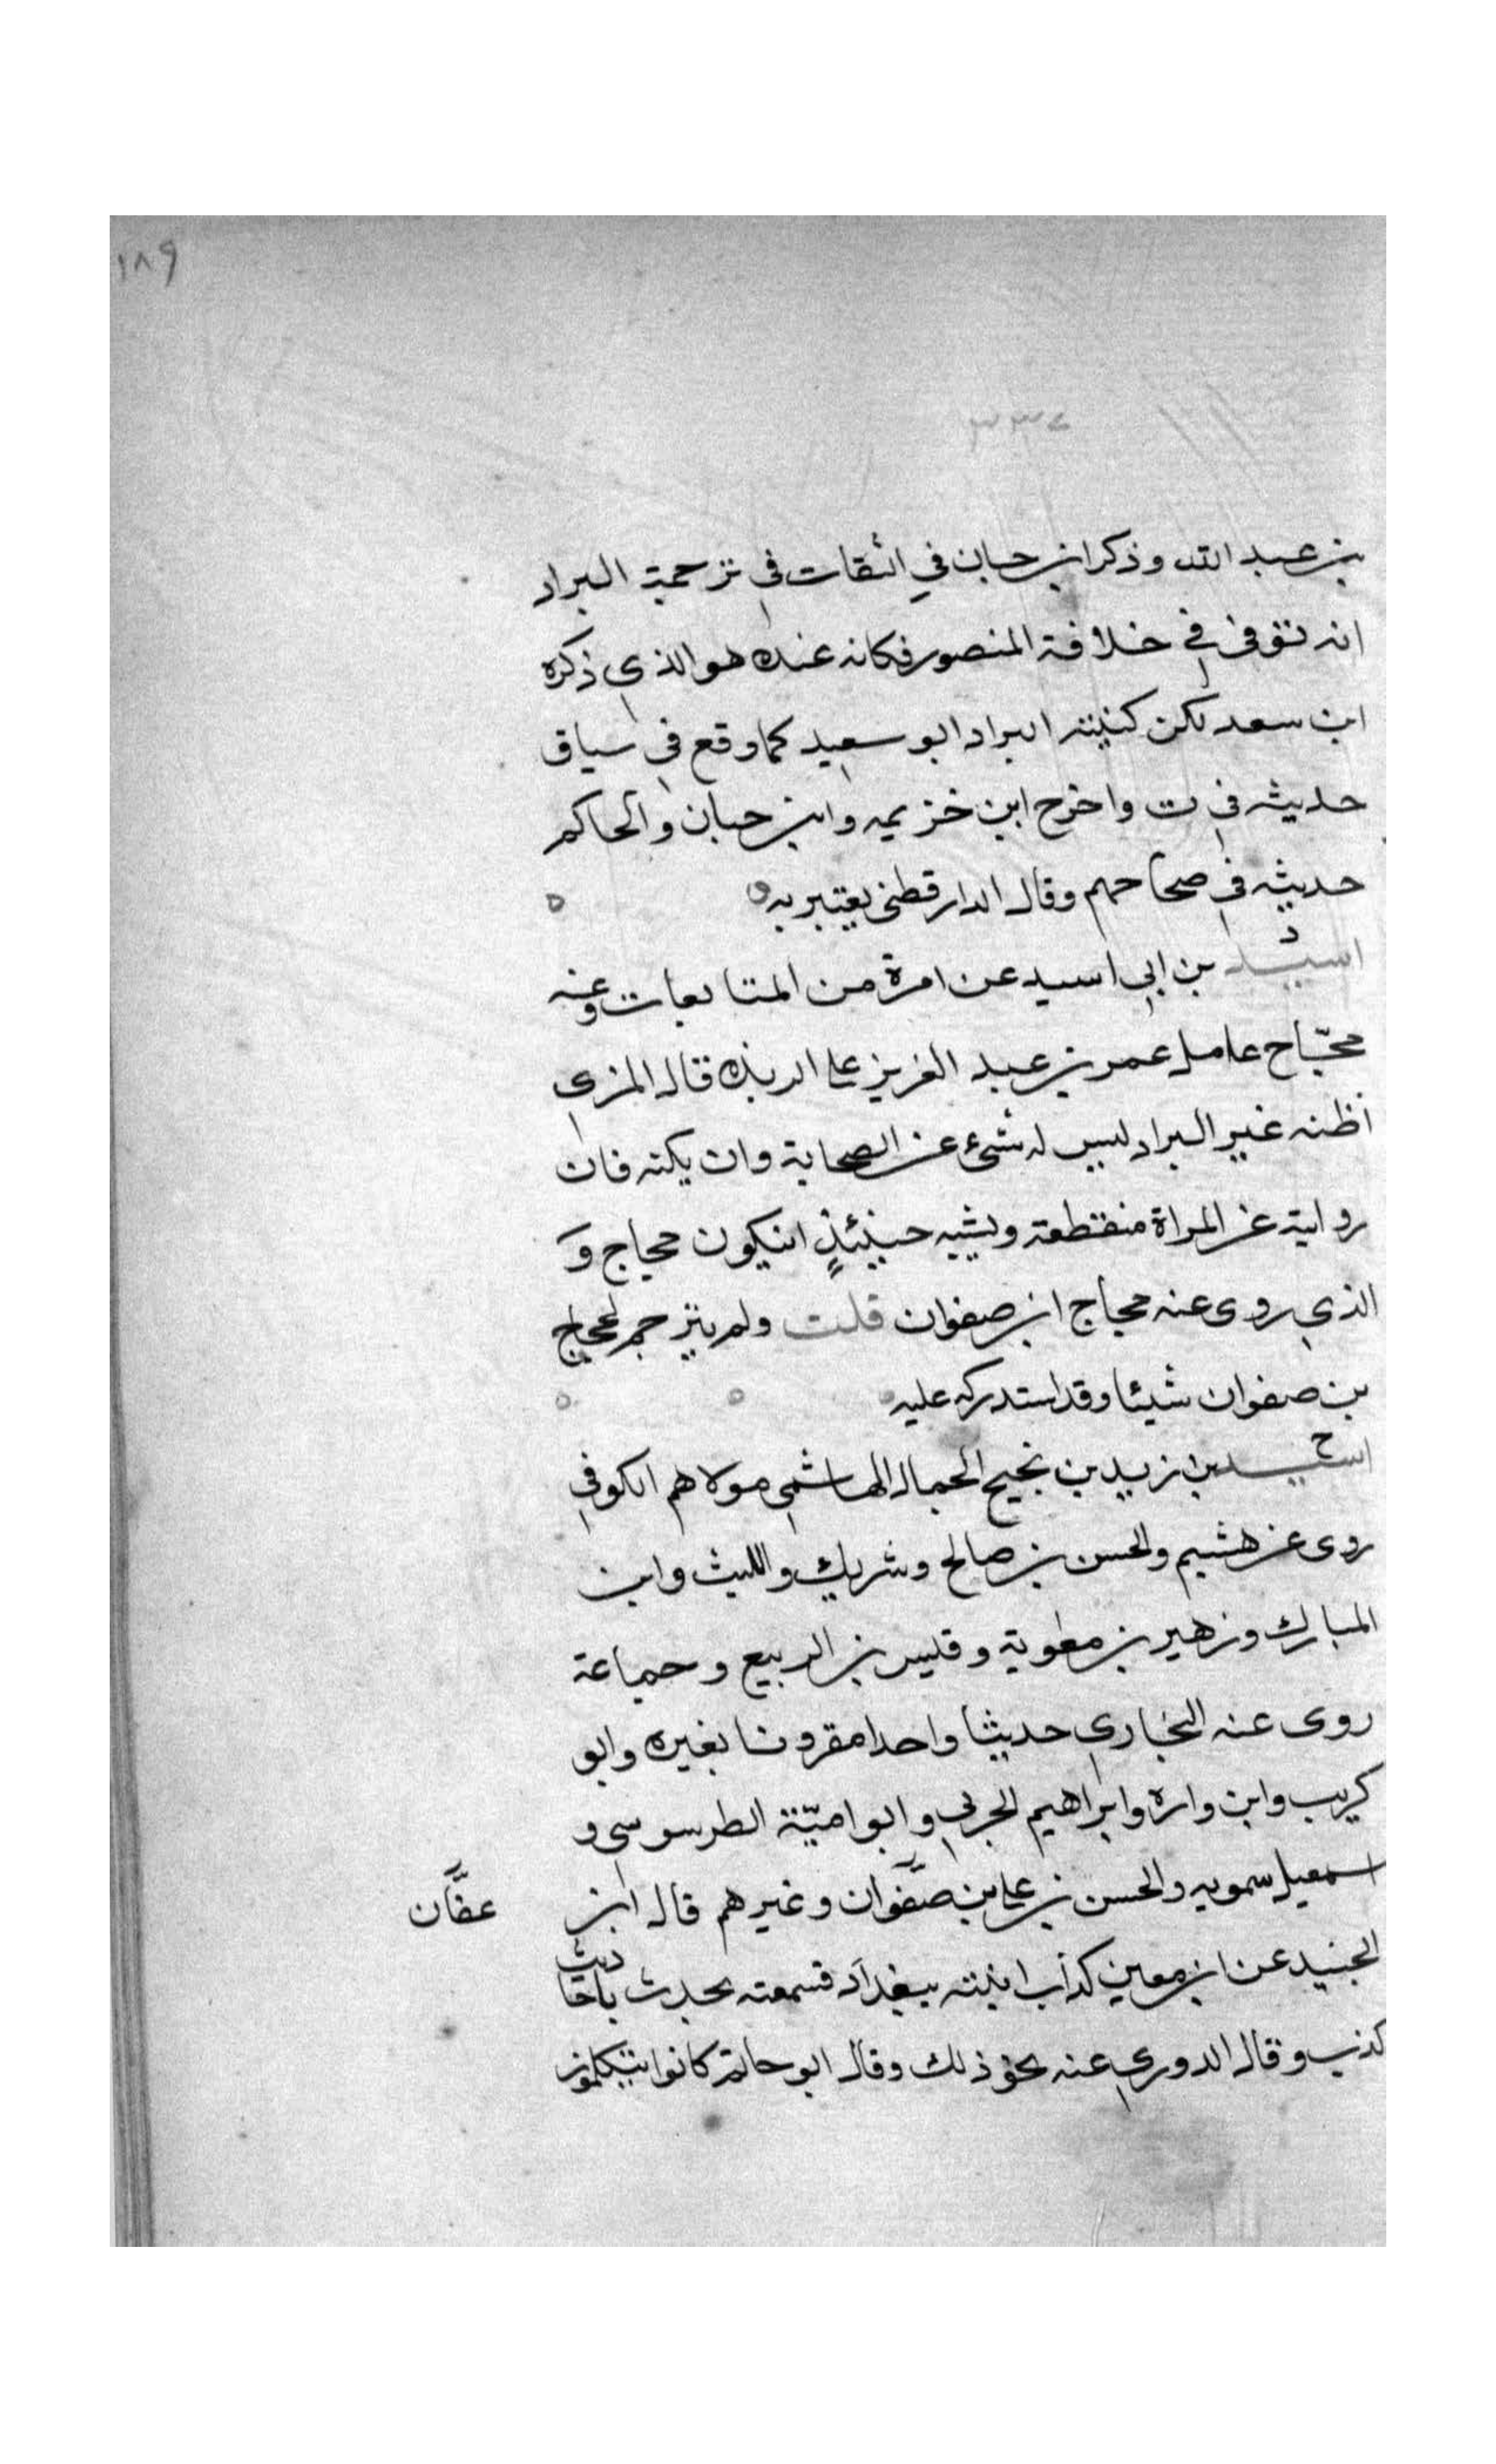 ١٨٩
بن عبد الله وذكر ابن حبان في الثقات في ترجمة البراد
انه توفى في خلافة المنصور فكانه عنده هو الذي ذكره
ابن سعد لكن كنيته البراد ابو سعيد كما وقع في سياق
حديثه في ت واخرج ابن خزيمه وابن حبان والحاكم
حديثه في صحاحهم وقال الدارقطنى يعتبر به
د
اسيد بن ابي اسيد عن امرة من المتابعات وعنه
حجاح عامل عمر بن عبد العزيز على الربذه قال المزي
اظنه غير البراد ليس له شىء عن الصحابة وان يكنه فان
روايته عن المراة منقطعة ويشبه حينئذٍ انيكون حجاج وَ
الذي روى عنه حجاج ابن صفوان قلت ولم يترجم لحجاج
بن صفوان شيئا وقد استدركه عليه
خ
اسيد بن زيد بن نجيح الجمال الهاشمي مولاهم الكوفي
روى عن هشيم والحسن بن صالح وشريك والليث وابن
المبارك وزهير بن معوية وقيس بن الربيع وجماعة
روى عنه البخاري حديثا واحدا مقرونا بغيره وابو
كريب وابن واره وابراهيم الحربي وابو اميّة الطرسوسي و
اسمعيل سمويه والحسن بن علي بن صفوان وغيرهم قال ابن
عفَّان
الجنيد عن ابن معين كذاب اتيته ببغداد فسمعته يحدث باحاديث
كذب وقال الدوري عنه نحو ذلك وقال ابو حاتم كانوا يتكلمون